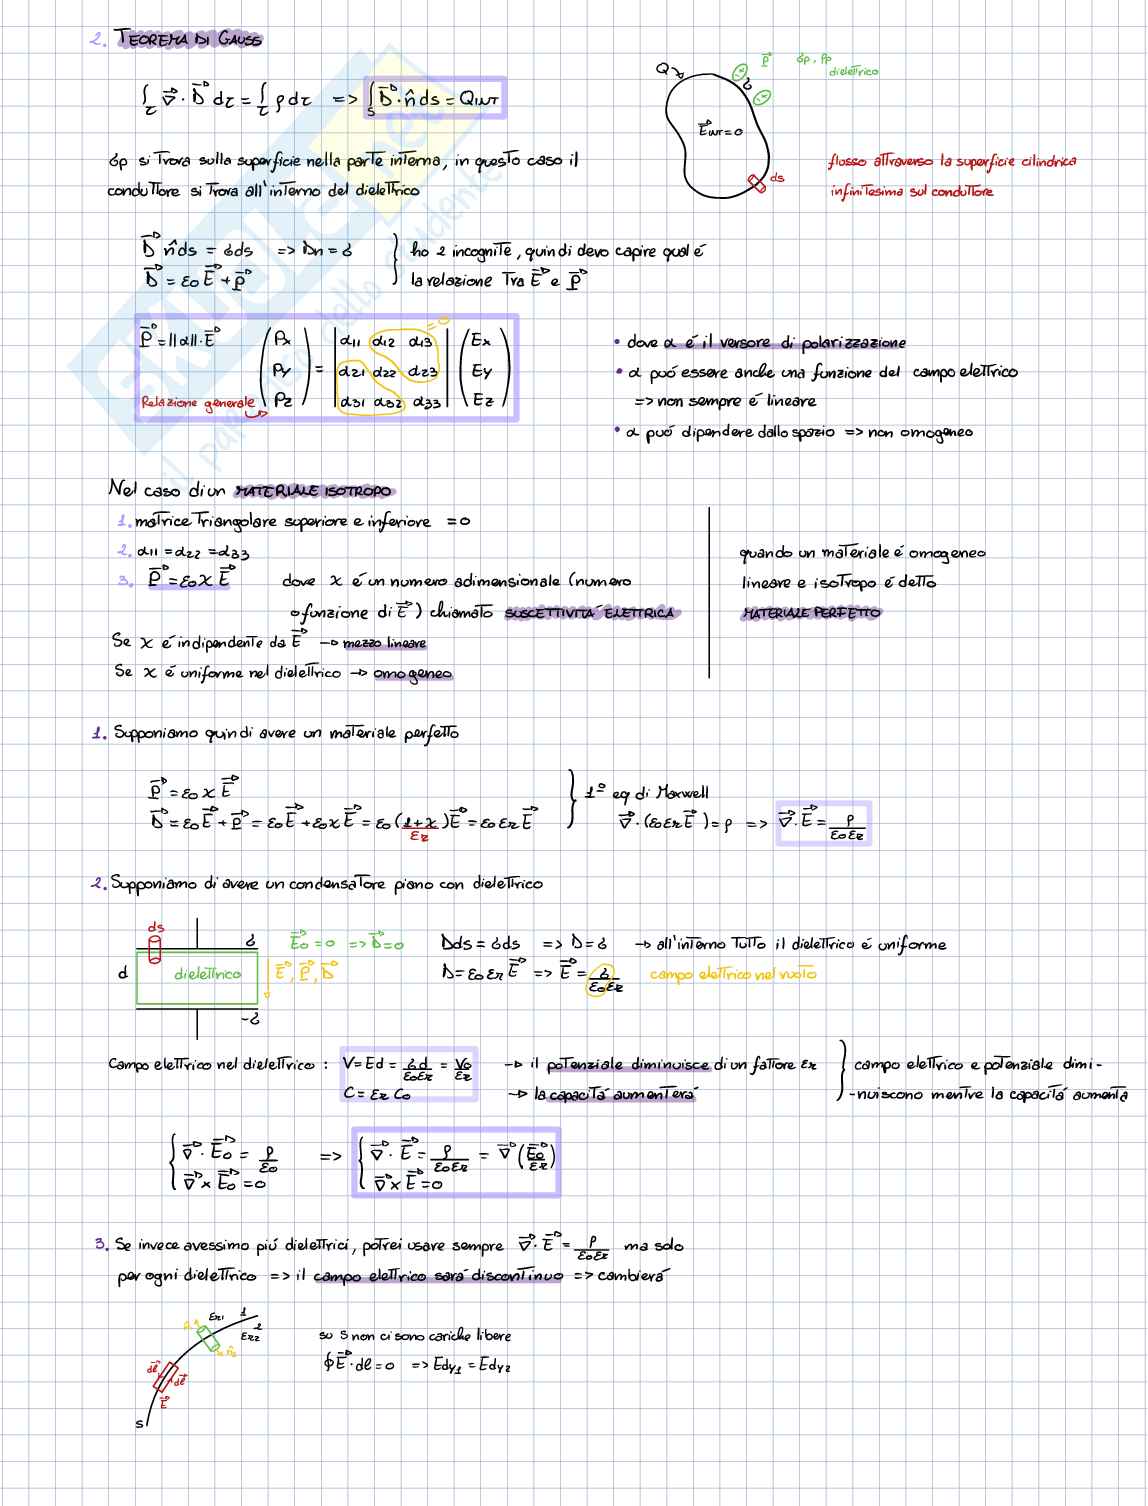 2. TEOREMA DI GAUSS
∫τ ∇⃗·D⃗ dτ = ∫τ ρ dτ => ∫s D⃗·n̂ ds = QINT
Q
P⃗
σp, ρp
dielettrico
E⃗INT = 0
ds
flusso attraverso la superficie cilindrica
infinitesima sul conduttore
σp si trova sulla superficie nella parte interna, in questo caso il
conduttore si trova all'interno del dielettrico
D⃗ n̂ ds = σds => Dn = σ
D⃗ = ε0 E⃗ + P⃗
ho 2 incognite, quindi devo capire qual é
la relazione tra E⃗ e P⃗
P⃗ = ||α||·E⃗
(Px) = |α11 α12 α13| (Ex)
(Py) |α21 α22 α23| (Ey)
(Pz) |α31 α32 α33| (Ez)
= 0
Relazione generale
• dove α é il versore di polarizzazione
• α puó essere anche una funzione del campo elettrico
=> non sempre é lineare
• α puó dipendere dallo spazio => non omogeneo
Nel caso di un MATERIALE ISOTROPO
1. matrice triangolare superiore e inferiore = 0
2. α11 = α22 = α33
3. P⃗ = ε0 χ E⃗ dove χ é un numero adimensionale (numero
o funzione di E⃗) chiamato SUSCETTIVITÁ ELETTRICA
Se χ é indipendente da E⃗ → mezzo lineare
Se χ é uniforme nel dielettrico → omogeneo
quando un materiale é omogeneo
lineare e isotropo é detto
MATERIALE PERFETTO
1. Supponiamo quindi avere un materiale perfetto
P⃗ = ε0 χ E⃗
D⃗ = ε0 E⃗ + P⃗ = ε0 E⃗ + ε0 χ E⃗ = ε0 (1+χ) E⃗ = ε0 εr E⃗
εr
1° eq di Maxwell
∇⃗·(ε0 εr E⃗) = ρ => ∇⃗·E⃗ = ρ/ε0εr
2. Supponiamo di avere un condensatore piano con dielettrico
ds
σ
d
dielettrico
-σ
E⃗0 = 0 => D⃗ = 0
E⃗, P⃗, D⃗
Dds = σds => D = σ → all'interno tutto il dielettrico é uniforme
D = ε0 εr E⃗ => E⃗ = σ/ε0εr campo elettrico nel vuoto
Campo elettrico nel dielettrico : V = Ed = σd/ε0εr = V0/εr → il potenziale diminuisce di un fattore εr
C = εr C0 → la capacitá aumenterá
campo elettrico e potenziale dimi-
-nuiscono mentre la capacitá aumenta
∇⃗·E⃗0 = ρ/ε0 => ∇⃗·E⃗ = ρ/ε0εr = ∇⃗(E⃗0/εr)
∇⃗×E⃗0 = 0 ∇⃗×E⃗ = 0
3. Se invece avessimo piú dielettrici, potrei usare sempre ∇⃗·E⃗ = ρ/ε0εr ma solo
per ogni dielettrico => il campo elettrico sará discontinuo => cambierá
εr1 1
2
εr2
n̂2
dl⃗
dl⃗
E⃗
S
su S non ci sono cariche libere
∮E⃗·dl = 0 => Edy1 = Edy2